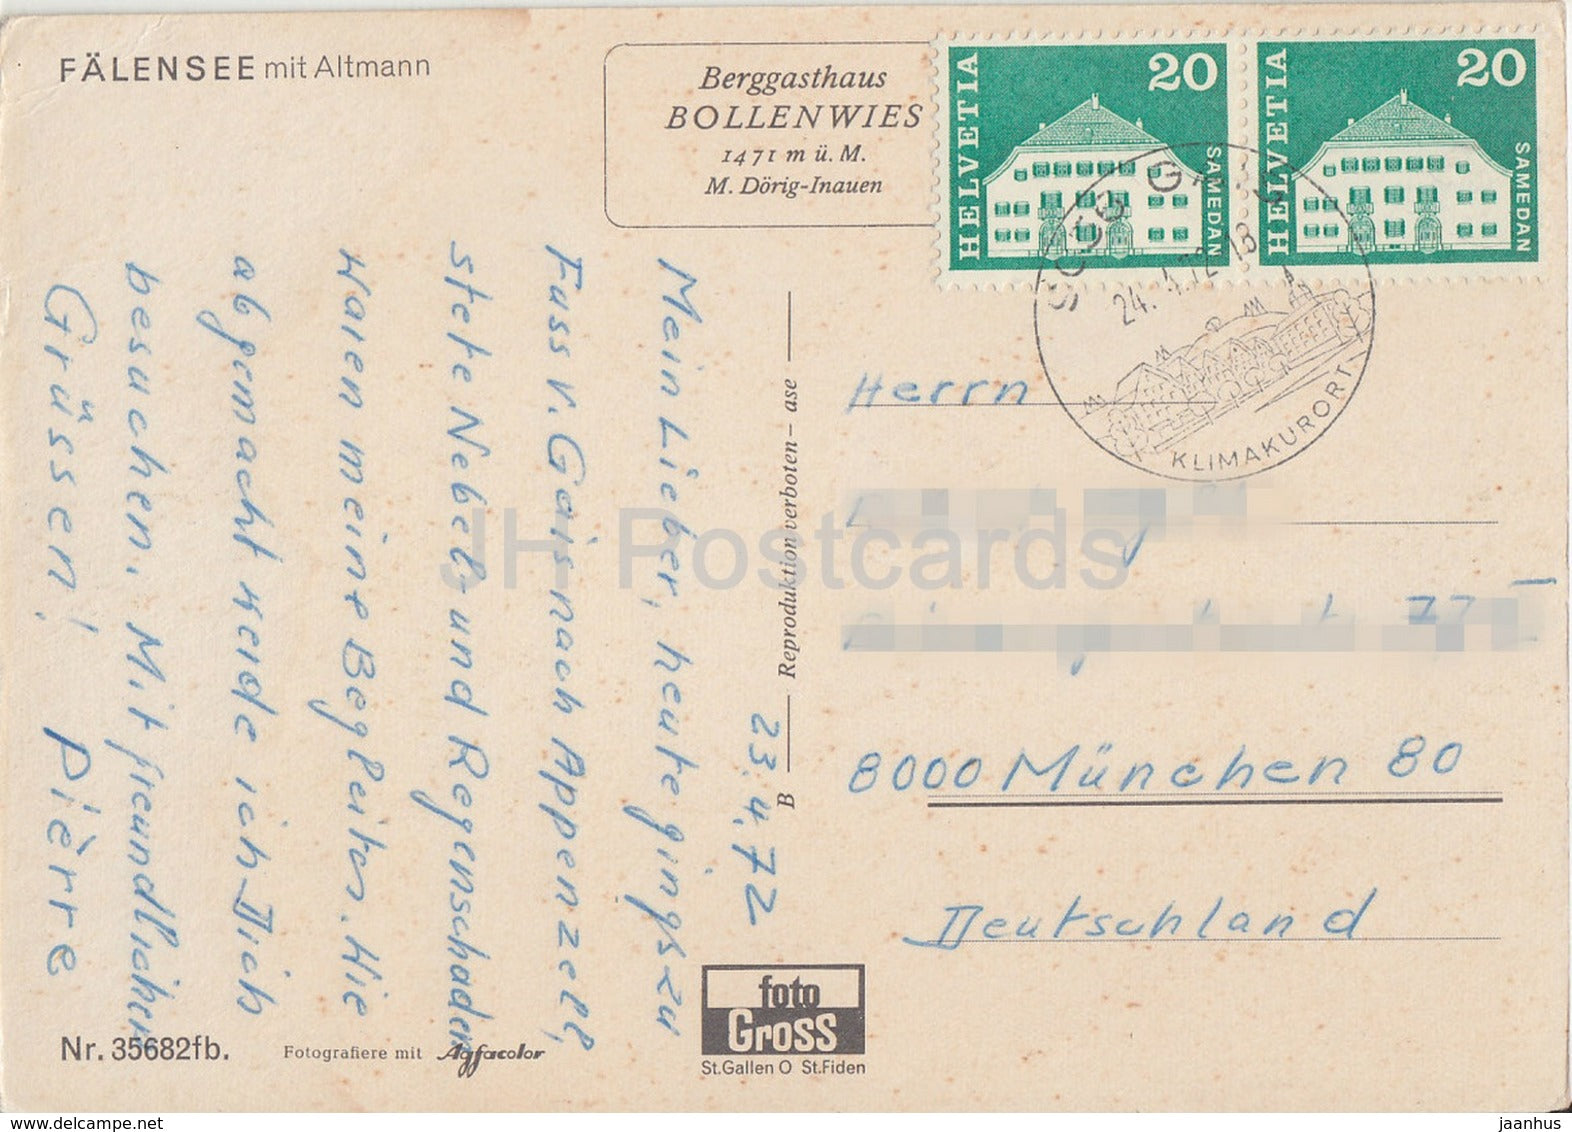 FÄLENSEE mit Altmann
Berggasthaus
BOLLENWIES
1471 m ü. M.
M. Dörig-Inauen
HELVETIA 20 SAMEDAN
HELVETIA 20 SAMEDAN
9056 GAIS
24.4.72-18
KLIMAKURORT
23.4.72
Mein Lieber, heute gings zu
Fuss v. Gais nach Appenzell,
stete Nebel- und Regenschaden
waren meine Begleiter. Wie
abgemacht werde ich Dich
besuchen. Mit freundlichen
Grüssen! Pièrre
B Reproduktion verboten - ase
Herrn
8000 München 80
Deutschland
Nr. 35682fb.
Fotografiere mit Agfacolor
foto
Gross
St.Gallen O St.Fiden
JH Postcards
www.delcampe.net
jaanhus